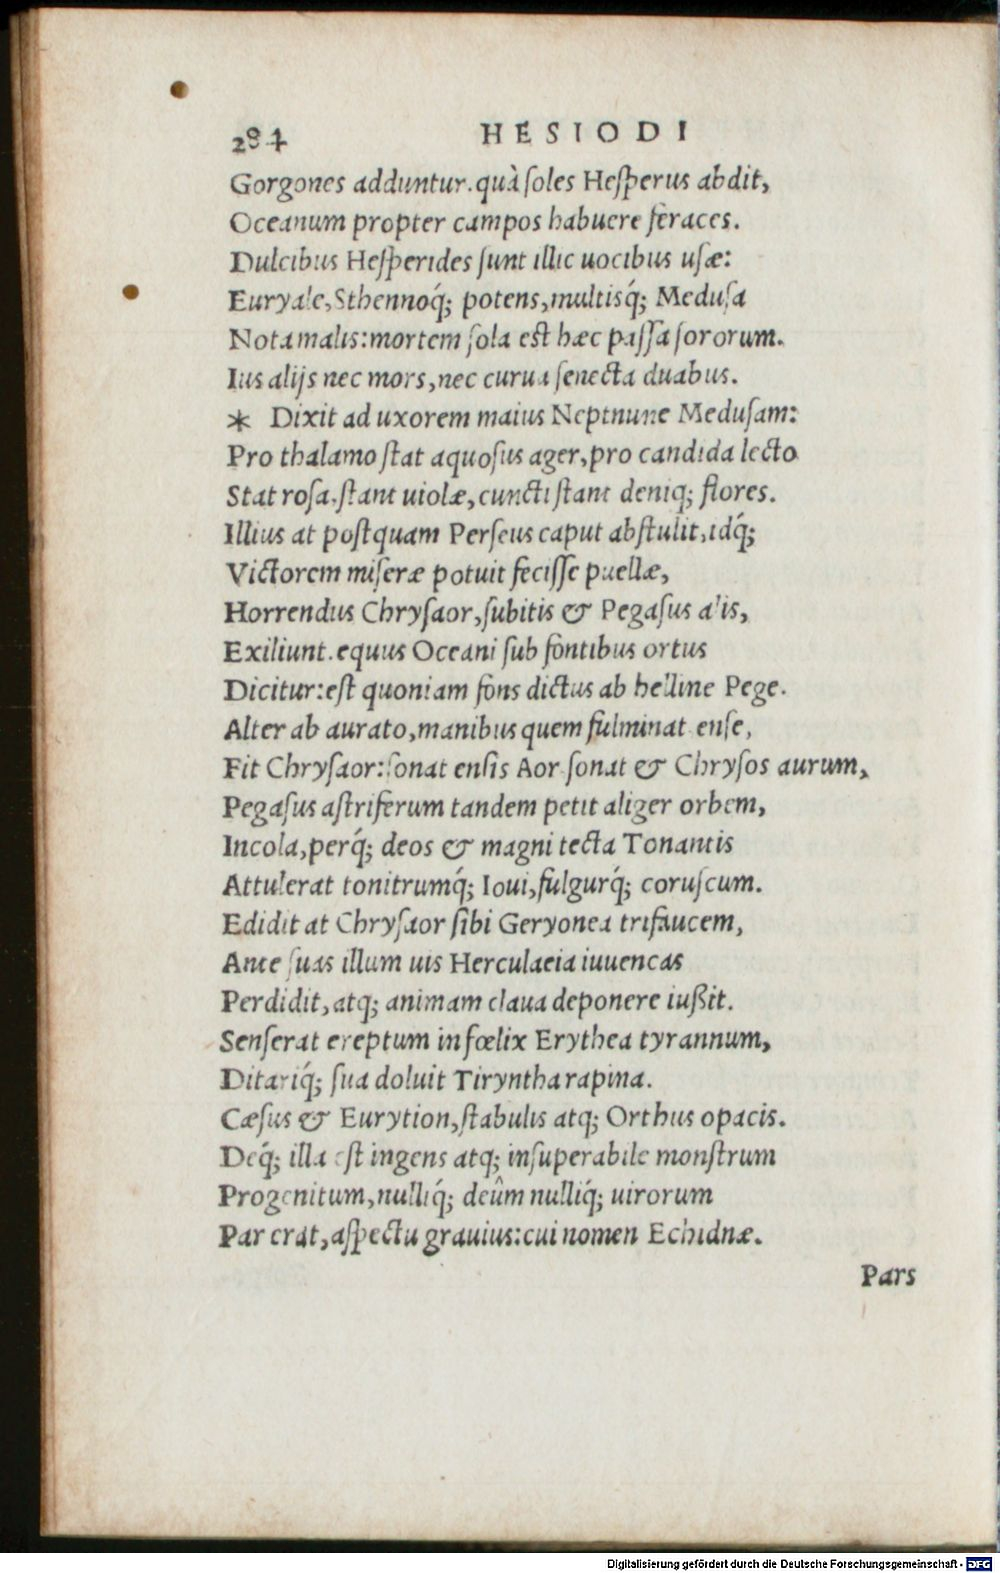 284 HESIODI
Gorgones adduntur. quà ſoles Heſperus abdit,
Oceanum propter campos habuere feraces.
Dulcibus Heſperides ſunt illic uocibus uſæ:
Euryale, Sthennoq́; potens, multisq́; Meduſa
Nota malis: mortem ſola est hæc paſſa ſororum.
Ius alijs nec mors, nec curua ſenecta duabus.
* Dixit ad uxorem maius Neptnune Meduſam:
Pro thalamo ſtat aquoſus ager, pro candida lecto
Stat roſa, ſtant uiolæ, cuncti ſtant deniq; flores.
Illius at poſtquam Perſeus caput abſtulit, idq́;
Victorem miſeræ potuit feciſſe puellæ,
Horrendus Chryſaor, ſubitis & Pegaſus alis,
Exiliunt. equus Oceani ſub fontibus ortus
Dicitur: eſt quoniam fons dictus ab helline Pege.
Alter ab aurato, manibus quem fulminat enſe,
Fit Chryſaor: ſonat enſis Aor ſonat & Chryſos aurum,
Pegaſus aſtriferum tandem petit aliger orbem,
Incola, perq́; deos & magni tecta Tonantis
Attulerat tonitrumq́; Ioui, fulgurq́; coruſcum.
Edidit at Chryſaor ſibi Geryonea trifaucem,
Ante ſuas illum uis Herculaeia iuuencas
Perdidit, atq; animam claua deponere iußit.
Senſerat ereptum infœlix Erythea tyrannum,
Ditariq́; ſua doluit Tiryntha rapina.
Cæſus & Eurytion, ſtabulis atq; Orthus opacis.
Deq́; illa eſt ingens atq; inſuperabile monſtrum
Progenitum, nulliq́; deûm nulliq́; uirorum
Par erat, aſpectu grauius: cui nomen Echidnæ.
Pars
Digitalisierung gefördert durch die Deutsche Forschungsgemeinschaft - DFG